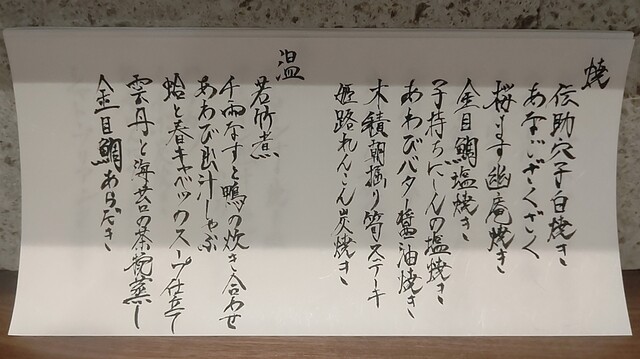 焼
伝助穴子白焼き
あなござくざく
桜ます幽庵焼き
金目鯛塩焼き
子持ちにしんの塩焼き
あわびバター醤油焼き
木積朝掘り筍ステーキ
姫路れんこん炭焼き
温
若竹煮
千両なすと鴨の炊き合わせ
あわび出汁しゃぶ
蛤と春キャベツのスープ仕立て
雲丹と海苔の茶碗蒸し
金目鯛あらだき